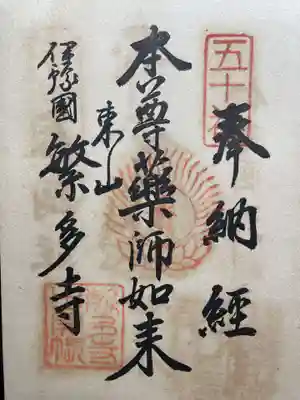 奉納経
五十番
本尊薬師如来
東山
伊豫國
繁多寺